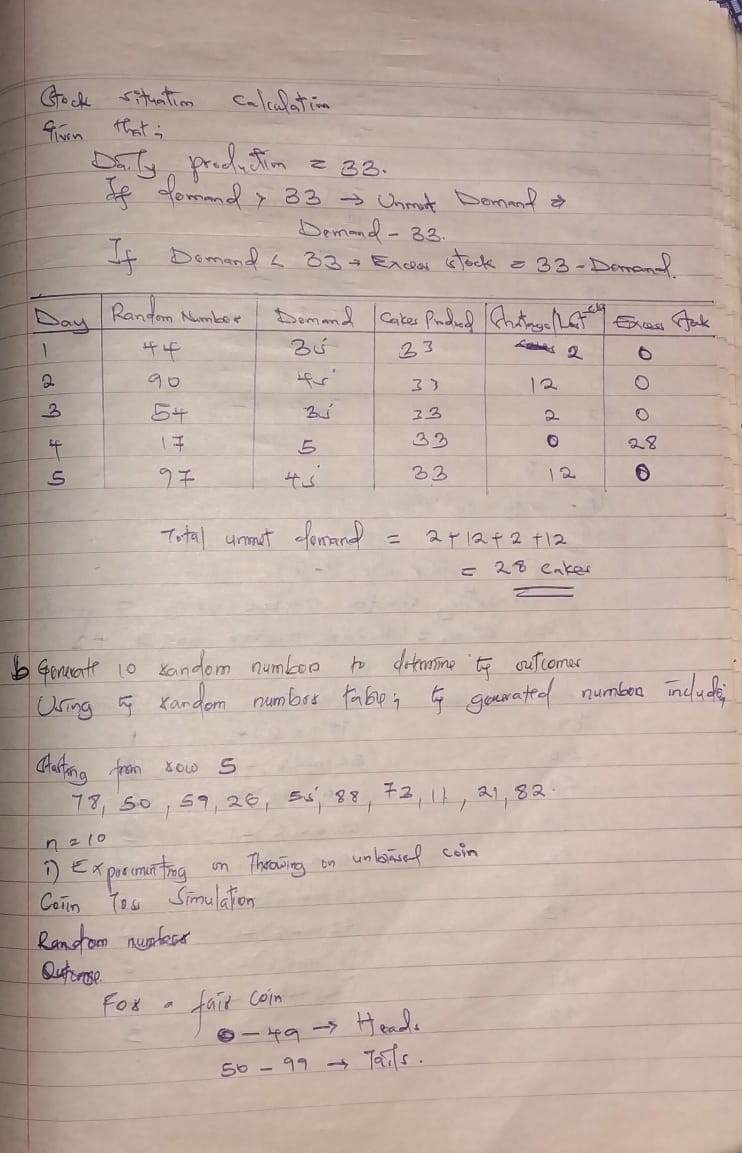 Stock situation calculation
Given that;
Daily production = 33.
If demand > 33 → Unmet Demand ⇒
Demand - 33.
If Demand < 33 → Excess stock = 33 - Demand.
Day Random Number Demand Cakes Produced Shortage/Lost Excess Stock
1 44 35 33 2 0
2 90 45 33 12 0
3 54 35 33 2 0
4 17 5 33 0 28
5 97 45 33 12 0
Total unmet demand = 2 + 12 + 2 + 12
= 28 cakes
b Generate 10 random numbers to determine outcomes
Using random number table; generated numbers include;
Starting from row 5
78, 50, 59, 26, 55, 88, 73, 11, 21, 82.
n = 10
i) Experimenting on Throwing on unbiased coin
Coin Toss Simulation
Random numbers
Outcome
For a fair coin
0 - 49 → Heads
50 - 99 → Tails.